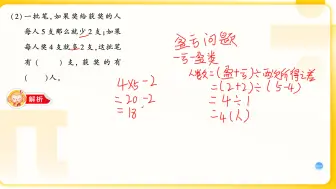 (2)一批笔,如果奖给获奖的人
每人5支那么就少2支;如果
每人奖4支就多2支,这批笔
有( )支,获奖的有
( )人。
解析
4×5-2
=20-2
=18
盈亏问题
一亏一盈类
人数=(盈+亏)÷两次所得之差
=(2+2)÷(5-4)
=4÷1
=4(人)